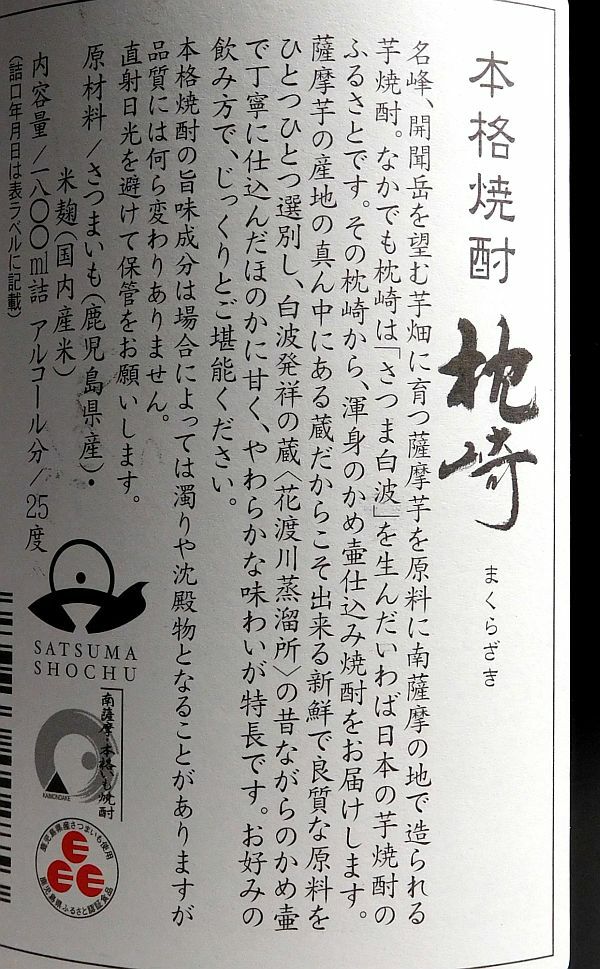 本格焼酎
枕崎
まくらざき
名峰、開聞岳を望む芋畑に育つ薩摩芋を原料に南薩摩の地で造られる
芋焼酎。なかでも枕崎は「さつま白波」を生んだいわば日本の芋焼酎の
ふるさとです。その枕崎から、渾身のかめ壷仕込み焼酎をお届けします。
薩摩芋の産地の真ん中にある蔵だからこそ出来る新鮮で良質な原料を
ひとつひとつ選別し、白波発祥の蔵〈花渡川蒸溜所〉の昔ながらのかめ壷
で丁寧に仕込んだほのかに甘く、やわらかな味わいが特長です。お好みの
飲み方で、じっくりとご堪能ください。
本格焼酎の旨味成分は場合によっては濁りや沈殿物となることがありますが
品質には何ら変わりありません。
直射日光を避けて保管をお願いします。
原材料/さつまいも(鹿児島県産)・
米麹(国内産米)
内容量/一八〇〇ml詰 アルコール分/25度
(詰口年月日は表ラベルに記載)
SATSUMA
SHOCHU
南薩摩・本格いも焼酎
KAIMONDAKE
鹿児島県産さつまいも使用
鹿児島県ふるさと認証食品